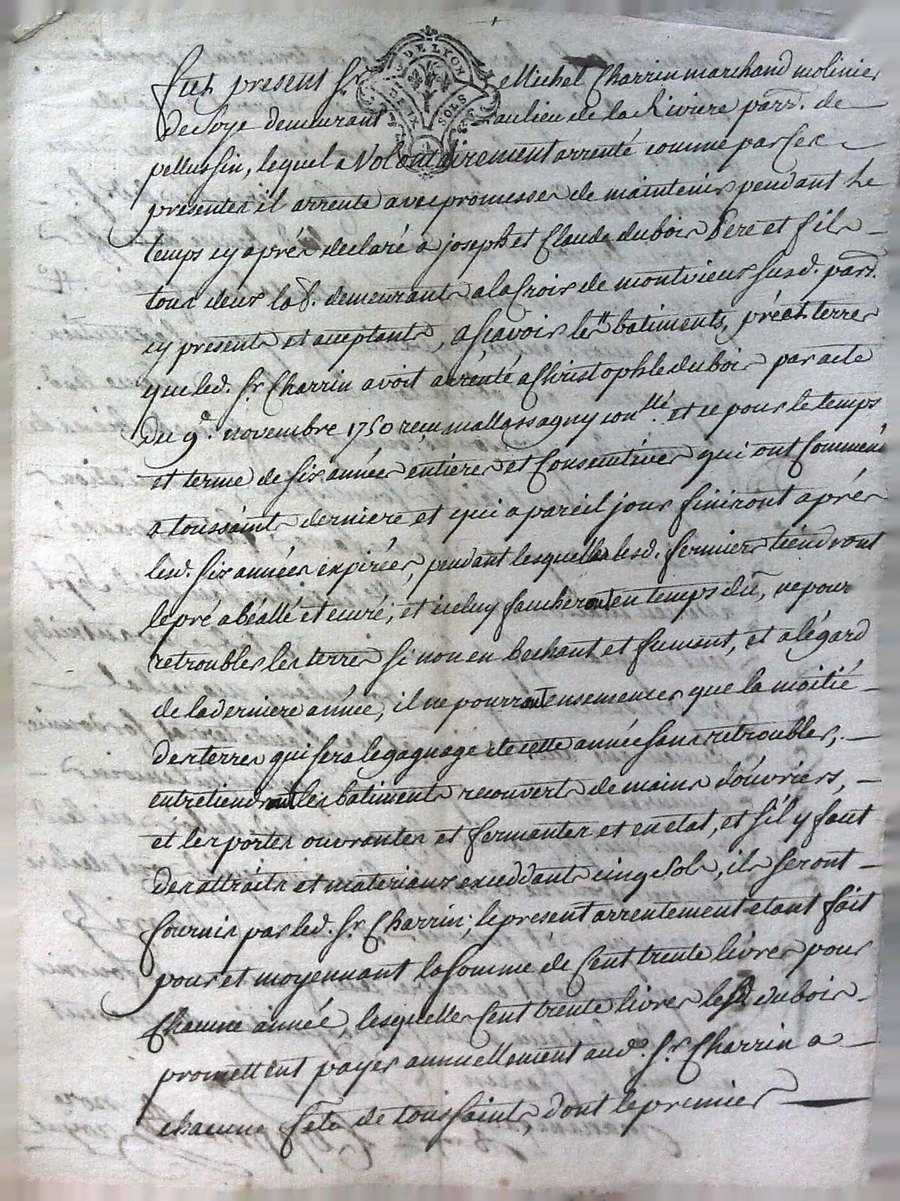 DE LYON
DEUX SOLS
fut present Sr. Michel Charrin marchand molinier
de Soye demeurant au lieu de la Riviere parr. de
pellussin, lequel a Volontairement arrenté comme par Ces
presentes il arrente avec promesse de maintenir pendant le
temps cy aprés declaré a joseph et Claude dubois Pere et fils
tous deux lab. demeurants a la Croix de montvieux susd. parr.
cy presents et acceptants, a sçavoir les batiments, prés et terres
que led. Sr. Charrin avoit arrenté a Christophle dubois par acte
du 9e. novembre 1750 reçu mallassagny conllé. et ce pour le temps
et terme de six années entieres et Consecutives qui ont Commencé
a toussaints derniere et qui a pareil jour finiront aprés
lesd. six années expirées, pendant lesquelles lesd. fermiers tiendront
le pré abéallé et curé, et iceluy faucheront en temps dû, ne pour
retroubler les terres si non en bechant et fumant, et a légard
de la derniere année, il ne pourront ensemencer que la moitié
des terres qui sera le gagnage de cette année sans retroubler,
entretiendront les batiments recouverts de mains d'ouvriers,
et les portes ouvrantes et fermantes et en etat, et s'il y faut
des attraits et materiaux exceddants cinq sols, ils seront
fournis par led. Sr. Charrin; le present arrentement etant fait
pour et moyennant la somme de Cent trente livres pour
Chacune année, lesquelles Cent trente livres lesd. dubois
promettent payer annuellement aud. Sr. Charrin a
chacune fête de toussaints, dont le premier